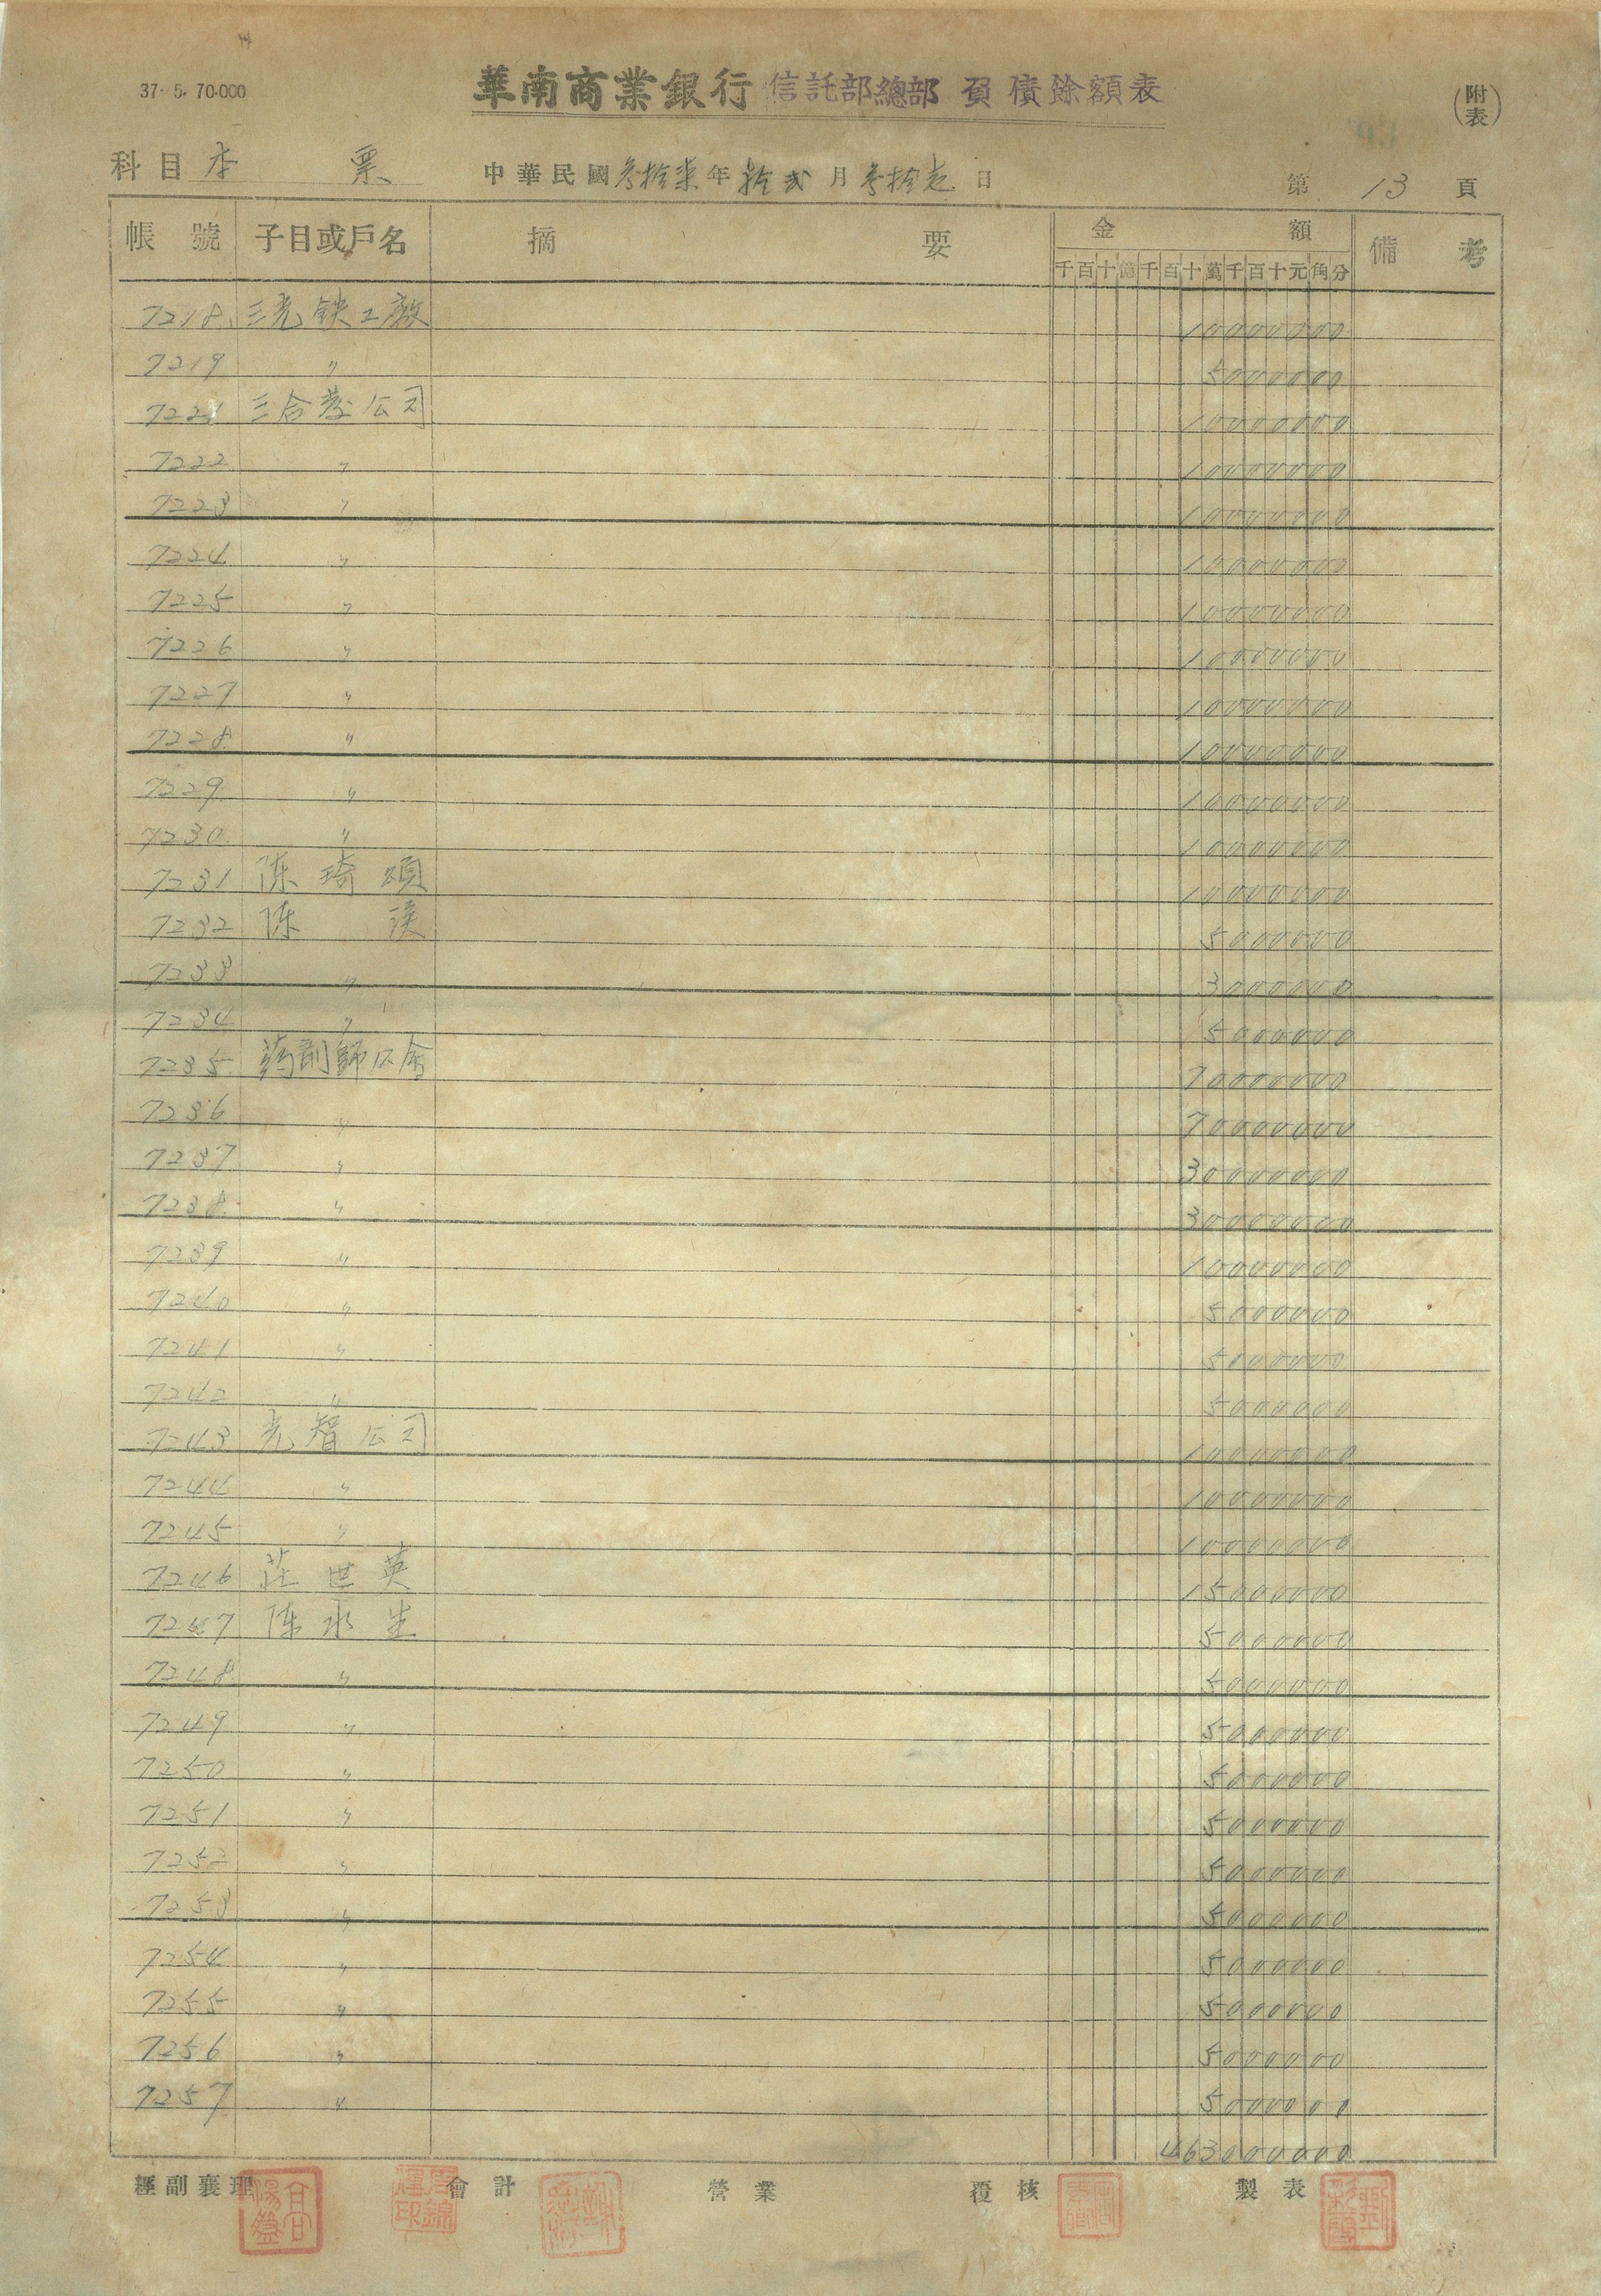 37. 5. 70.000
華南商業銀行 信託部總部 負債餘額表
(附表)
科目 本 票 中華民國 叁拾柒 年 拾弍 月 叁拾壱 日 第 13 頁
帳號 子目或戶名 摘要 金額 備考
千百十億千百十萬千百十元角分
7218 三光鉄工廠 10000000
7219 〃 5000000
7221 三合 公司 10000000
7222 〃 10000000
7223 〃 10000000
7224 〃 10000000
7225 〃 10000000
7226 〃 10000000
7227 〃 10000000
7228 〃 10000000
7229 〃 10000000
7230 〃 10000000
7231 陈琦頌 10000000
7232 陈 5000000
7233 〃 3000000
7234 〃 5000000
7235 葯剤師公會 70000000
7236 〃 70000000
7237 〃 30000000
7238 〃 30000000
7239 〃 10000000
7240 〃 5000000
7241 〃 5000000
7242 〃 5000000
7243 光智公司 10000000
7244 〃 10000000
7245 〃 10000000
7246 莊世英 15000000
7247 陈水生 5000000
7248 〃 5000000
7249 〃 5000000
7250 〃 5000000
7251 〃 5000000
7252 〃 5000000
7253 〃 5000000
7254 〃 5000000
7255 〃 5000000
7256 〃 5000000
7257 〃 5000000
463000000
經副襄理 會計 營業 覆核 製表